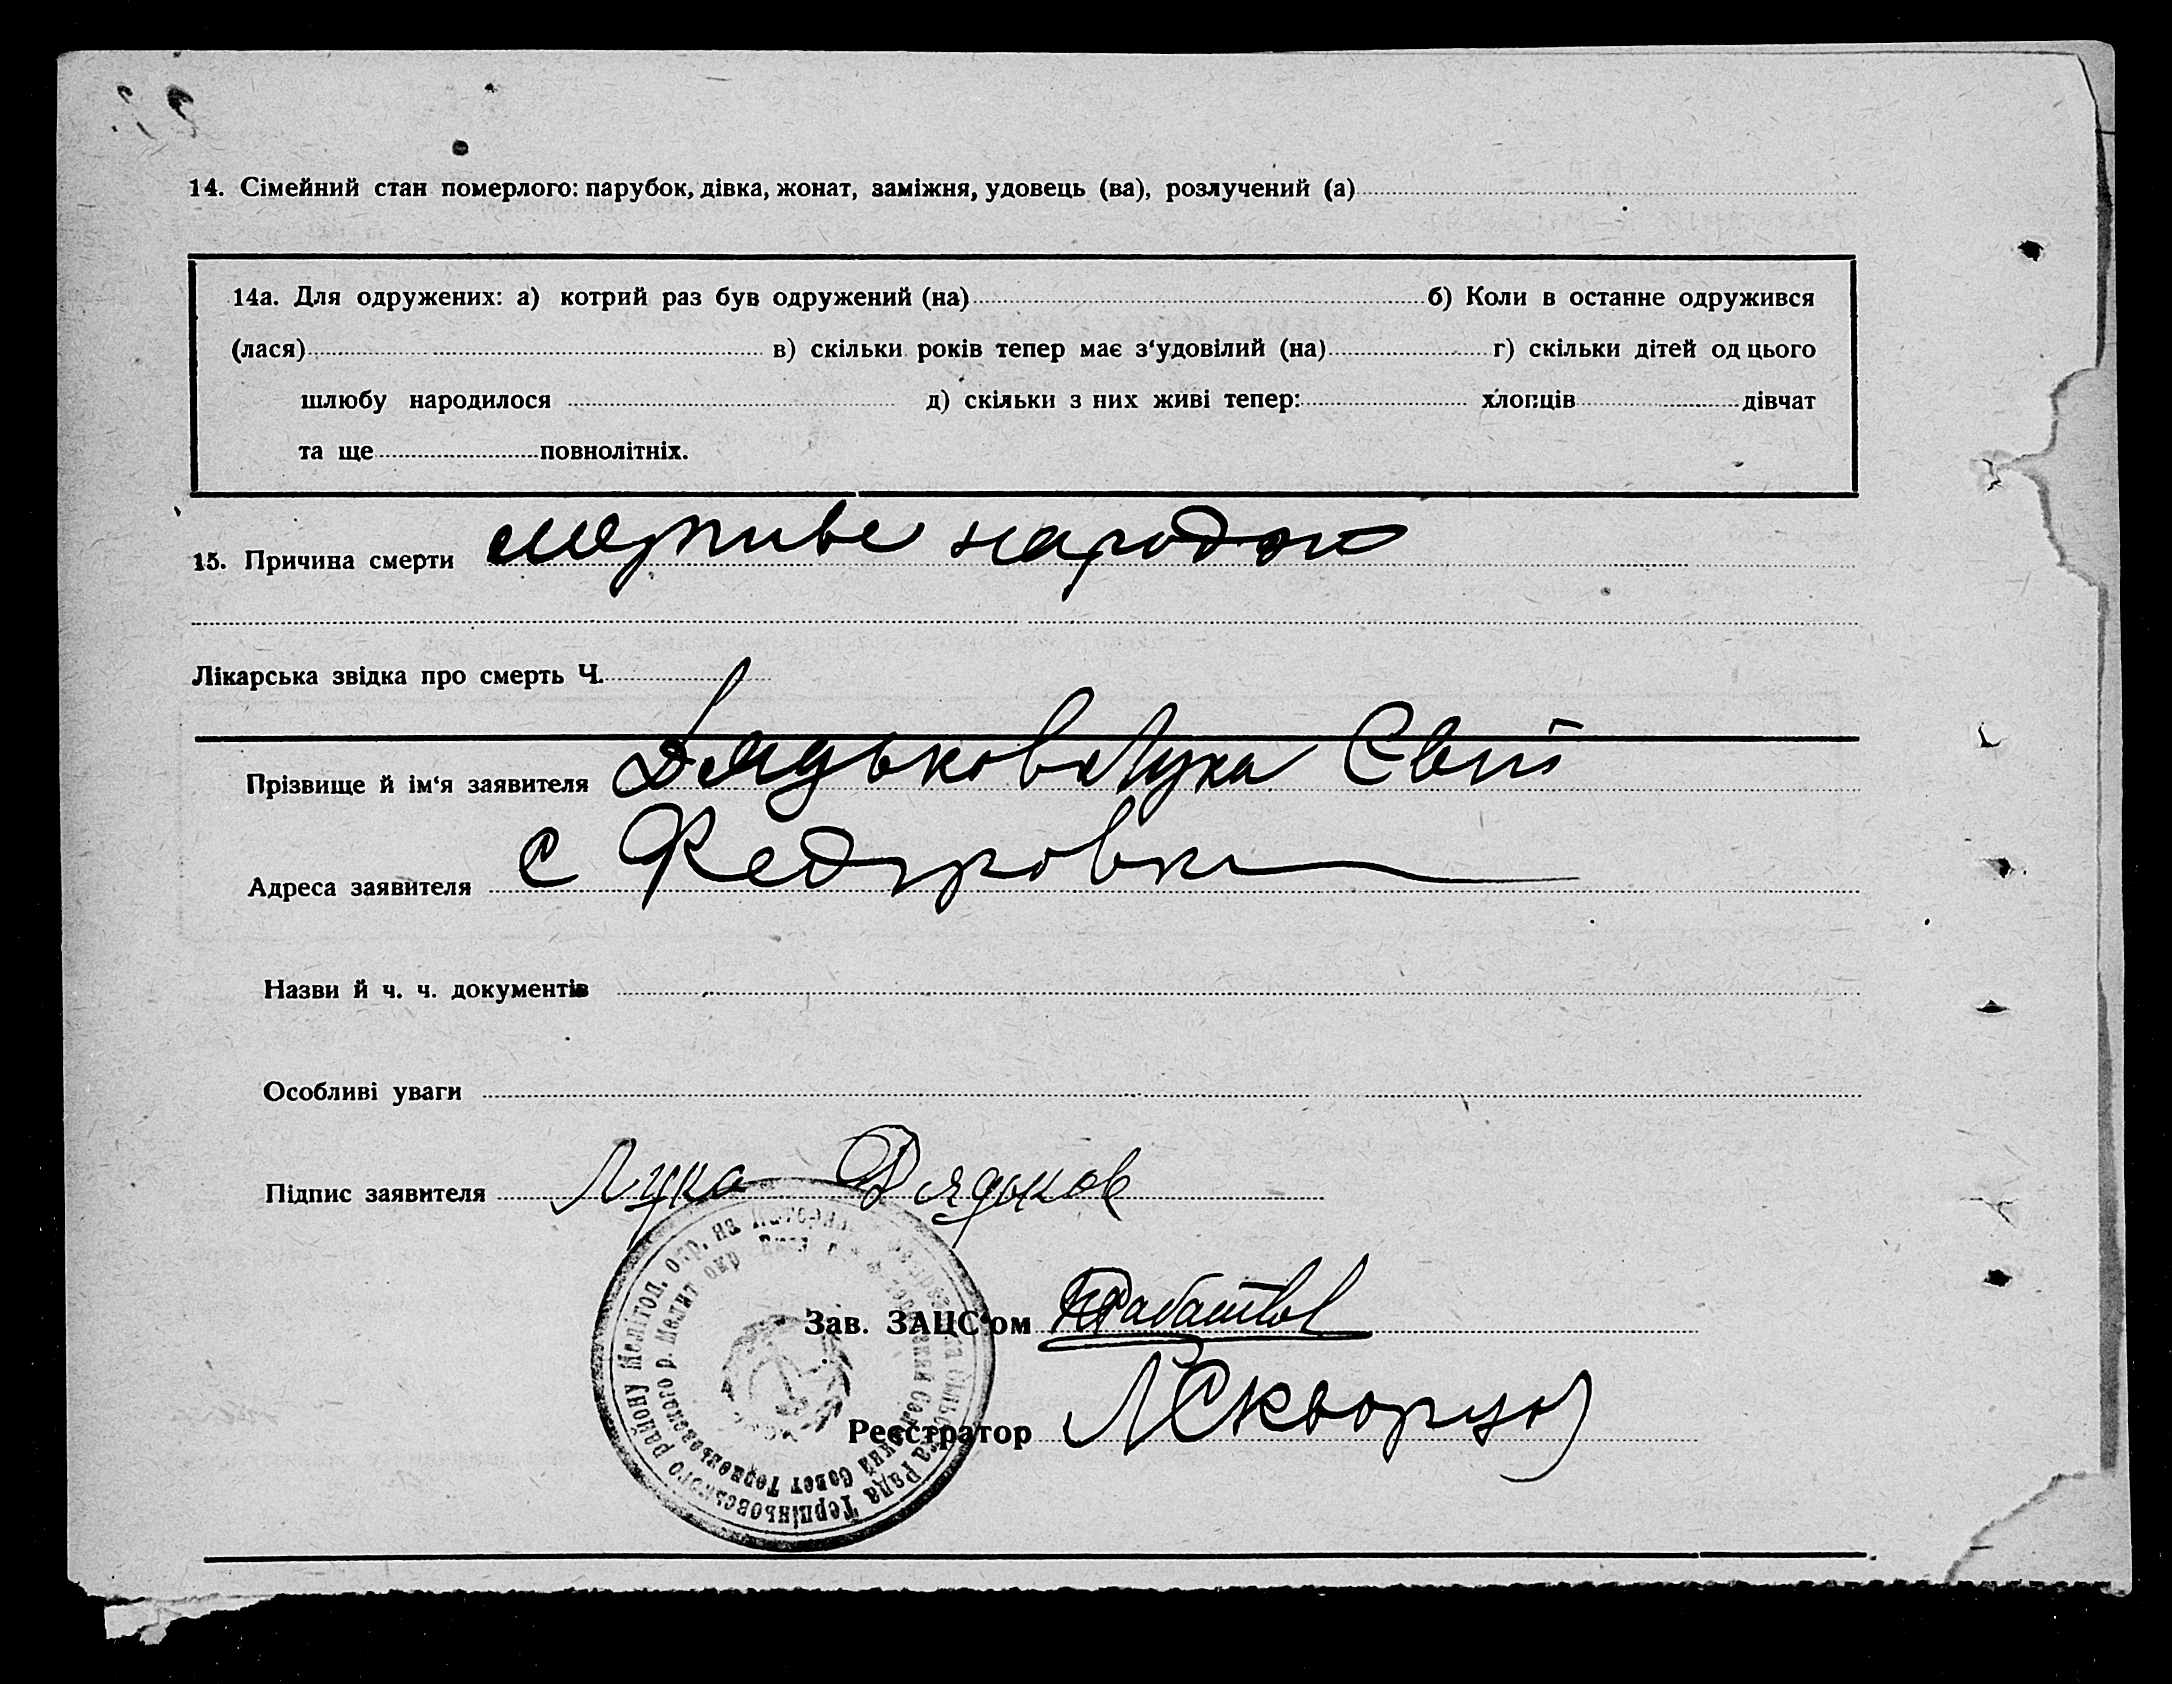 14. Сімейний стан померлого: парубок, дівка, жонат, заміжня, удовець (ва), розлучений (а)
14а. Для одружених: а) котрий раз був одружений (на) б) Коли в останне одружився
(лася) в) скільки років тепер має з‘удовілий (на) г) скільки дітей од цього
шлюбу народилося д) скільки з них живі тепер: хлопців дівчат
та ще повнолітніх.
15. Причина смерти
Лікарська звідка про смерть Ч.
Прізвище й ім‘я заявителя Дядьков Лука
Адреса заявителя с Федоровка
Назви й ч. ч. документів
Особливі уваги
Підпис заявителя Лука Дядьков
Зав. ЗАЦС‘ом
Реєстратор Скворцов
Рада Терпіньовського району Меліtоп. окр. на
Совет Терпеньевского р. Мелит окр